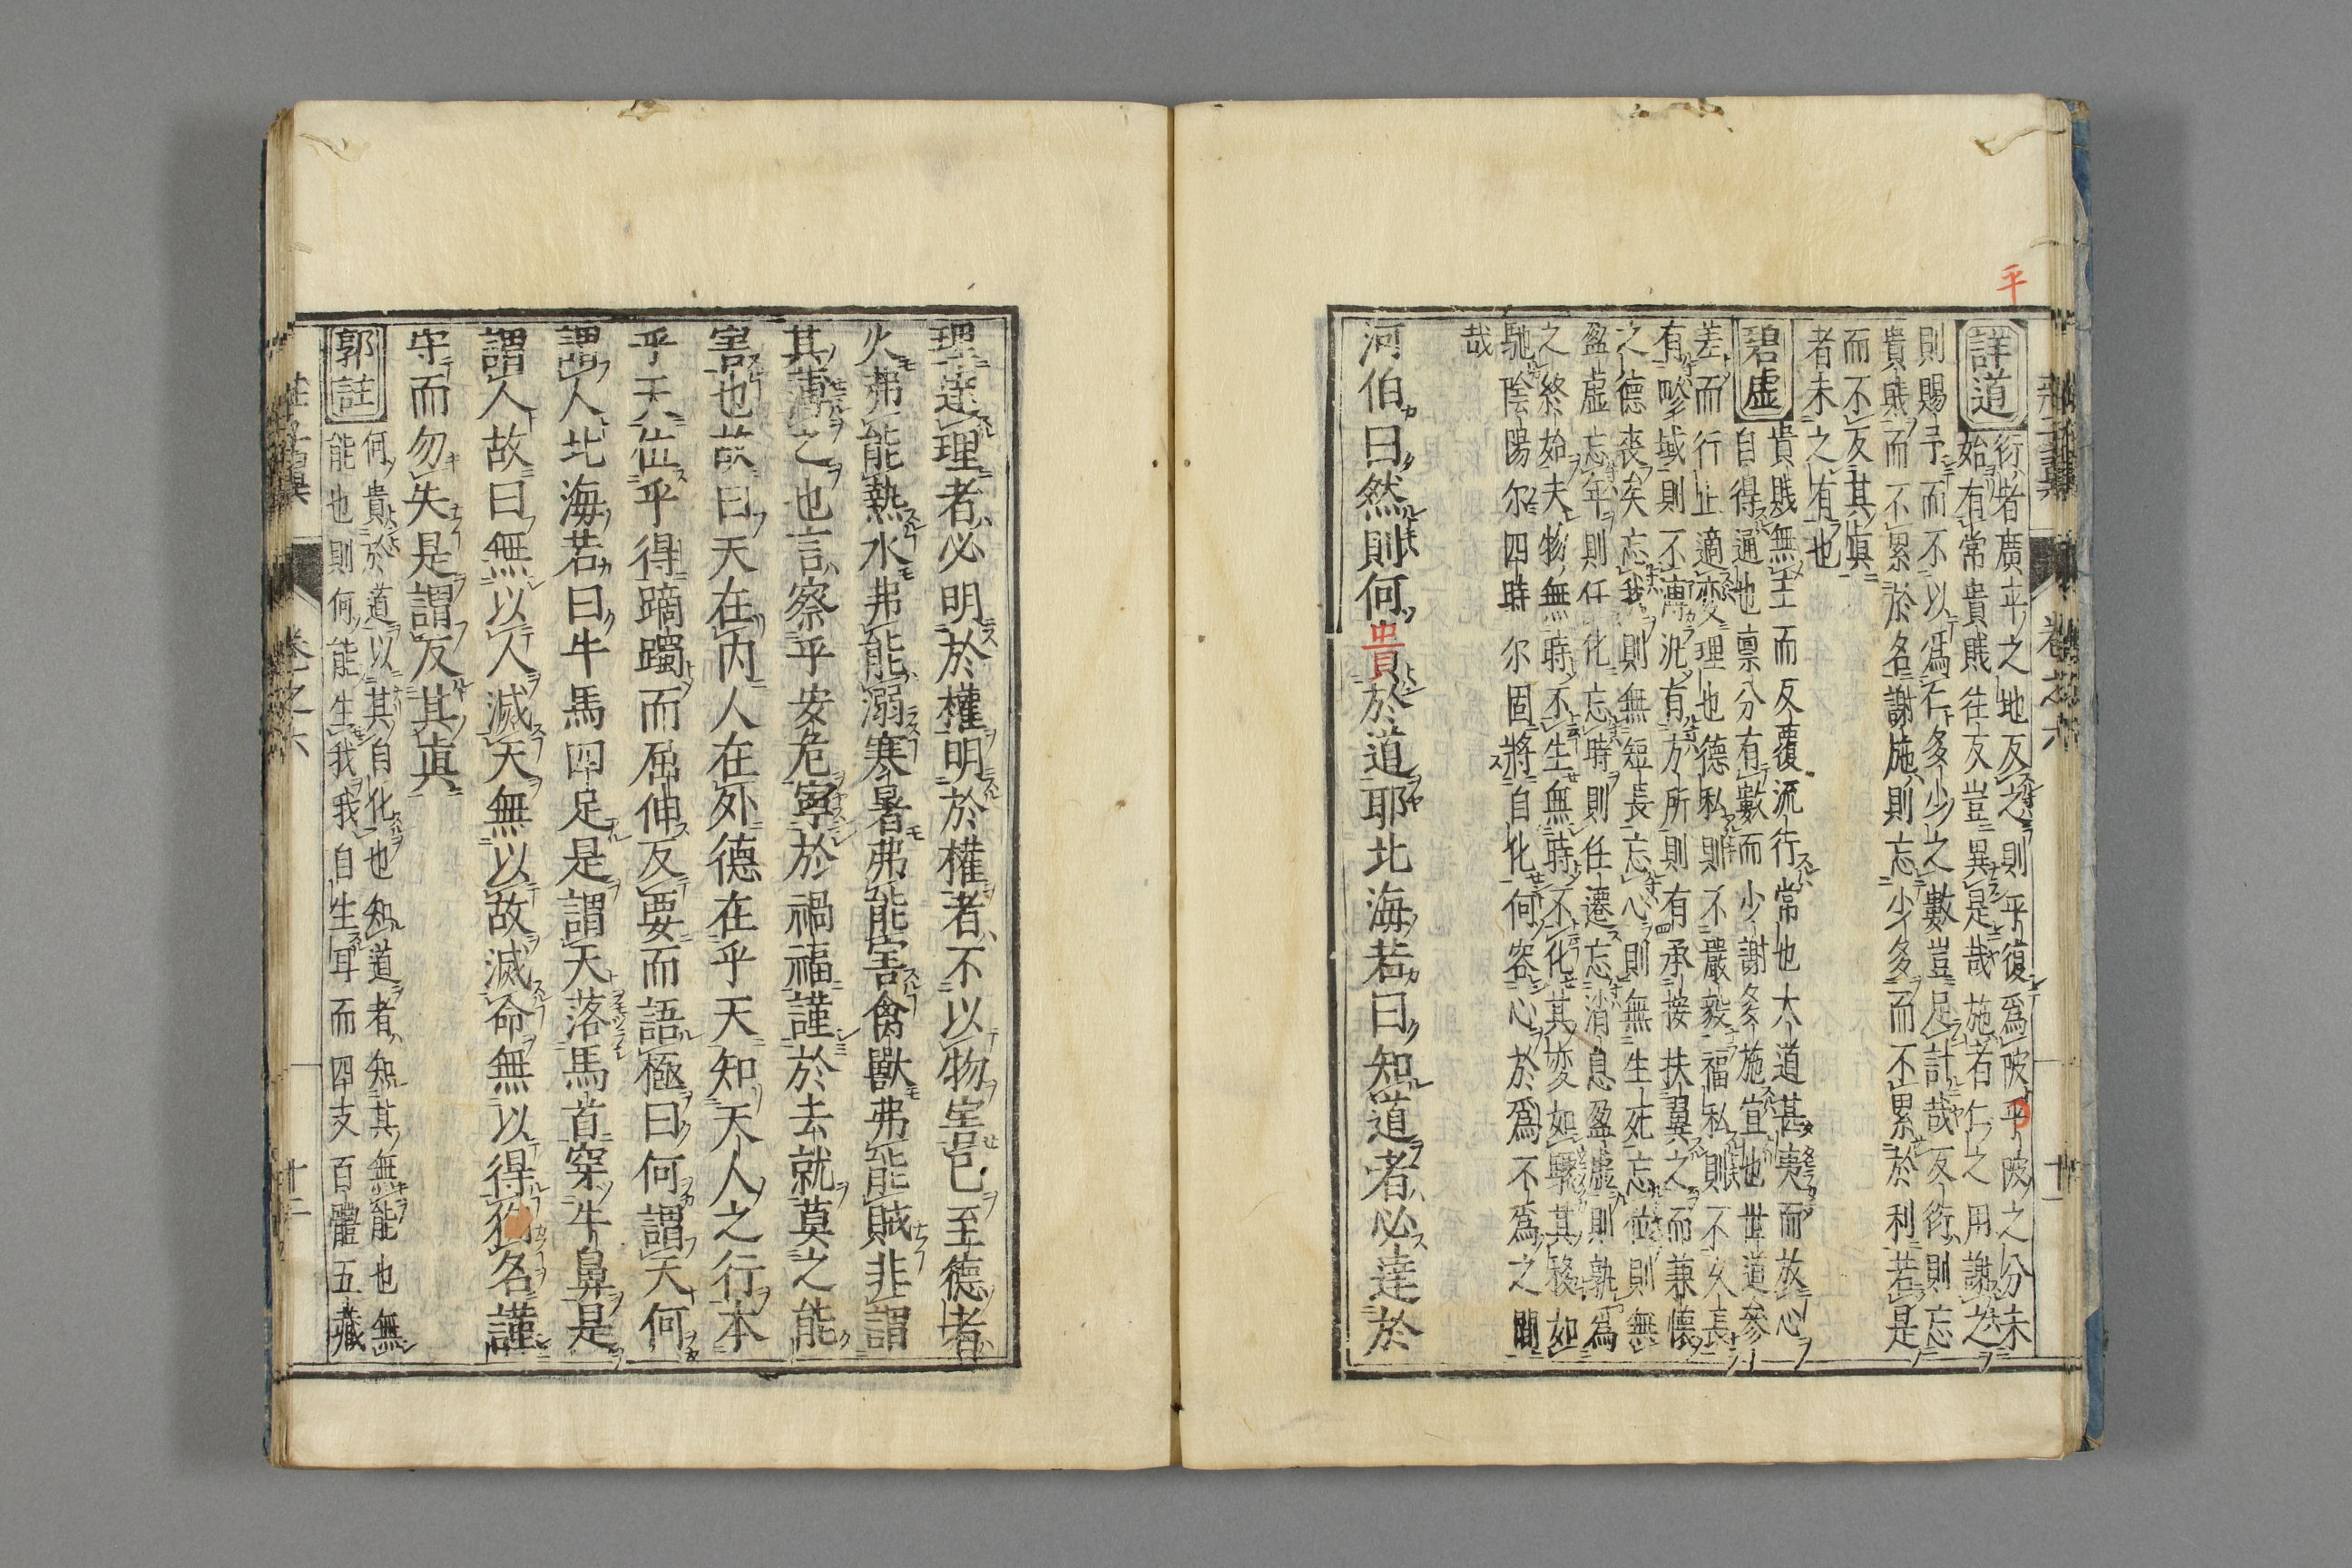 平
詳道
衍者廣平之地反之則平復為陂平陂之分未
始有常貴賎往反豈異是哉施者仁之用謝之
則賜予而不以為仁多少之數豈足計哉反衍則忘
貴賎而不累於名謝施則忘少多而不累於利若是
而不反其眞
者未之有也
碧虚
貴賎無主而反覆流行常也大道甚夷而放心
自得通也禀分有數而少謝多施宜也世道參
差而行止適変理也德私則不嚴毅福私則不久長
有畛域則不溥汎有方所則有承接扶翼之而兼懷
之德喪矣忘我則無短長忘心則無生死忘位則無
盈虚忘年則任化忘時則任遷忘消息盈虚則孰為
之終始夫物無時不生無時不化其変如驟其移如
馳陰陽尔四時尔固將自化何容心於為不為之間
哉
河伯曰然則何貴於道耶北海若曰知道者必達於
莊子翼
卷之六
十二
理達理者必明於權明於權者不以物害已至德者
火弗能熱水弗能溺寒暑弗能害禽獸弗能賊非謂
其薄之也言察乎安危寧於禍福謹於去就莫之能
害也故曰天在内人在外德在乎天知天人之行本
乎天位乎得蹢躅而屈伸反要而語極曰何謂天何
謂人北海若曰牛馬四足是謂天落馬首穿牛鼻是
謂人故曰無以人滅天無以故滅命無以得殉名謹
守而勿失是謂反其眞
郭註
何貴於道以其自化也知道者知其無能也無
能也則何能生我我自生耳而四支百體五藏
卷之六
十二